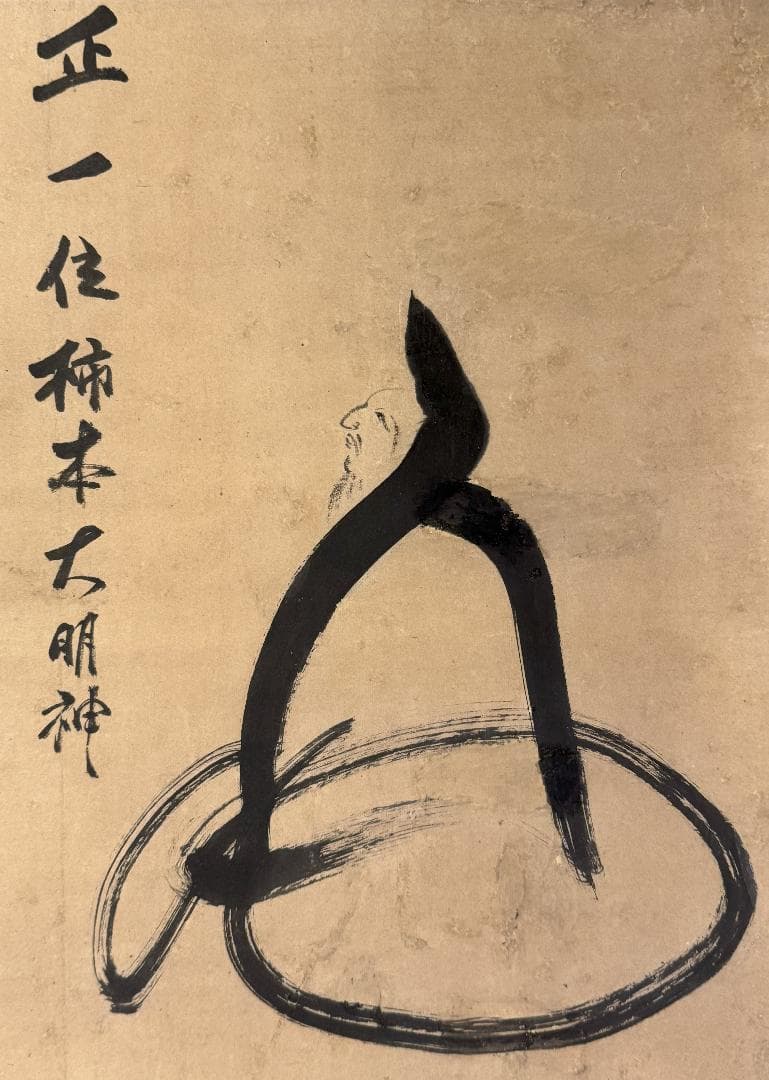 正一位柿本大明神